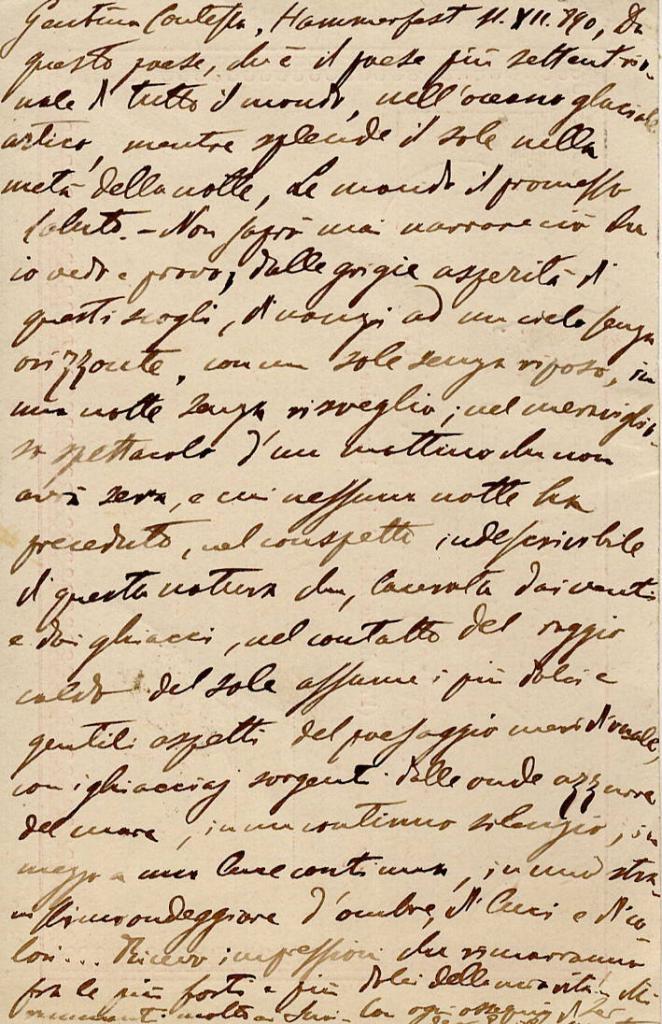 Gentma Contessa, Hammerfest 11. VII. 890, Da
questo paese, che è il paese più settentrio-
nale di tutto il mondo, nell'oceano glaciale
artico, mentre splende il sole nella
metà della notte, Le mando il promesso
saluto. - Non saprò mai narrare ciò che
io vedo e provo, dalle grigie asperità di
questi scogli, dinanzi ad un cielo senza
orizzonte, con un sole senza riposo, in
una notte senza risveglio; nel meraviglio-
so spettacolo d'un mattino che non
avrà sera, e cui nessuna notte ha
preceduto, nel cospetto indescrivibile
di questa natura che, lacerata dai venti
e dai ghiacci, nel contatto del raggio
caldo del sole assume i più dolci e
gentili aspetti del paesaggio meridionale,
con i ghiacciaj sorgenti dalle onde azzurre
del mare, in un continuo silenzio, in
mezzo a una luce continua, in uno stra-
nissimo ondeggiare d'ombre, di luci e di co-
lori... Ricevo impressioni che rimarranno
fra le più forti e più dolci della mia vita!
molto ai Suoi. Con ogni ossequio di